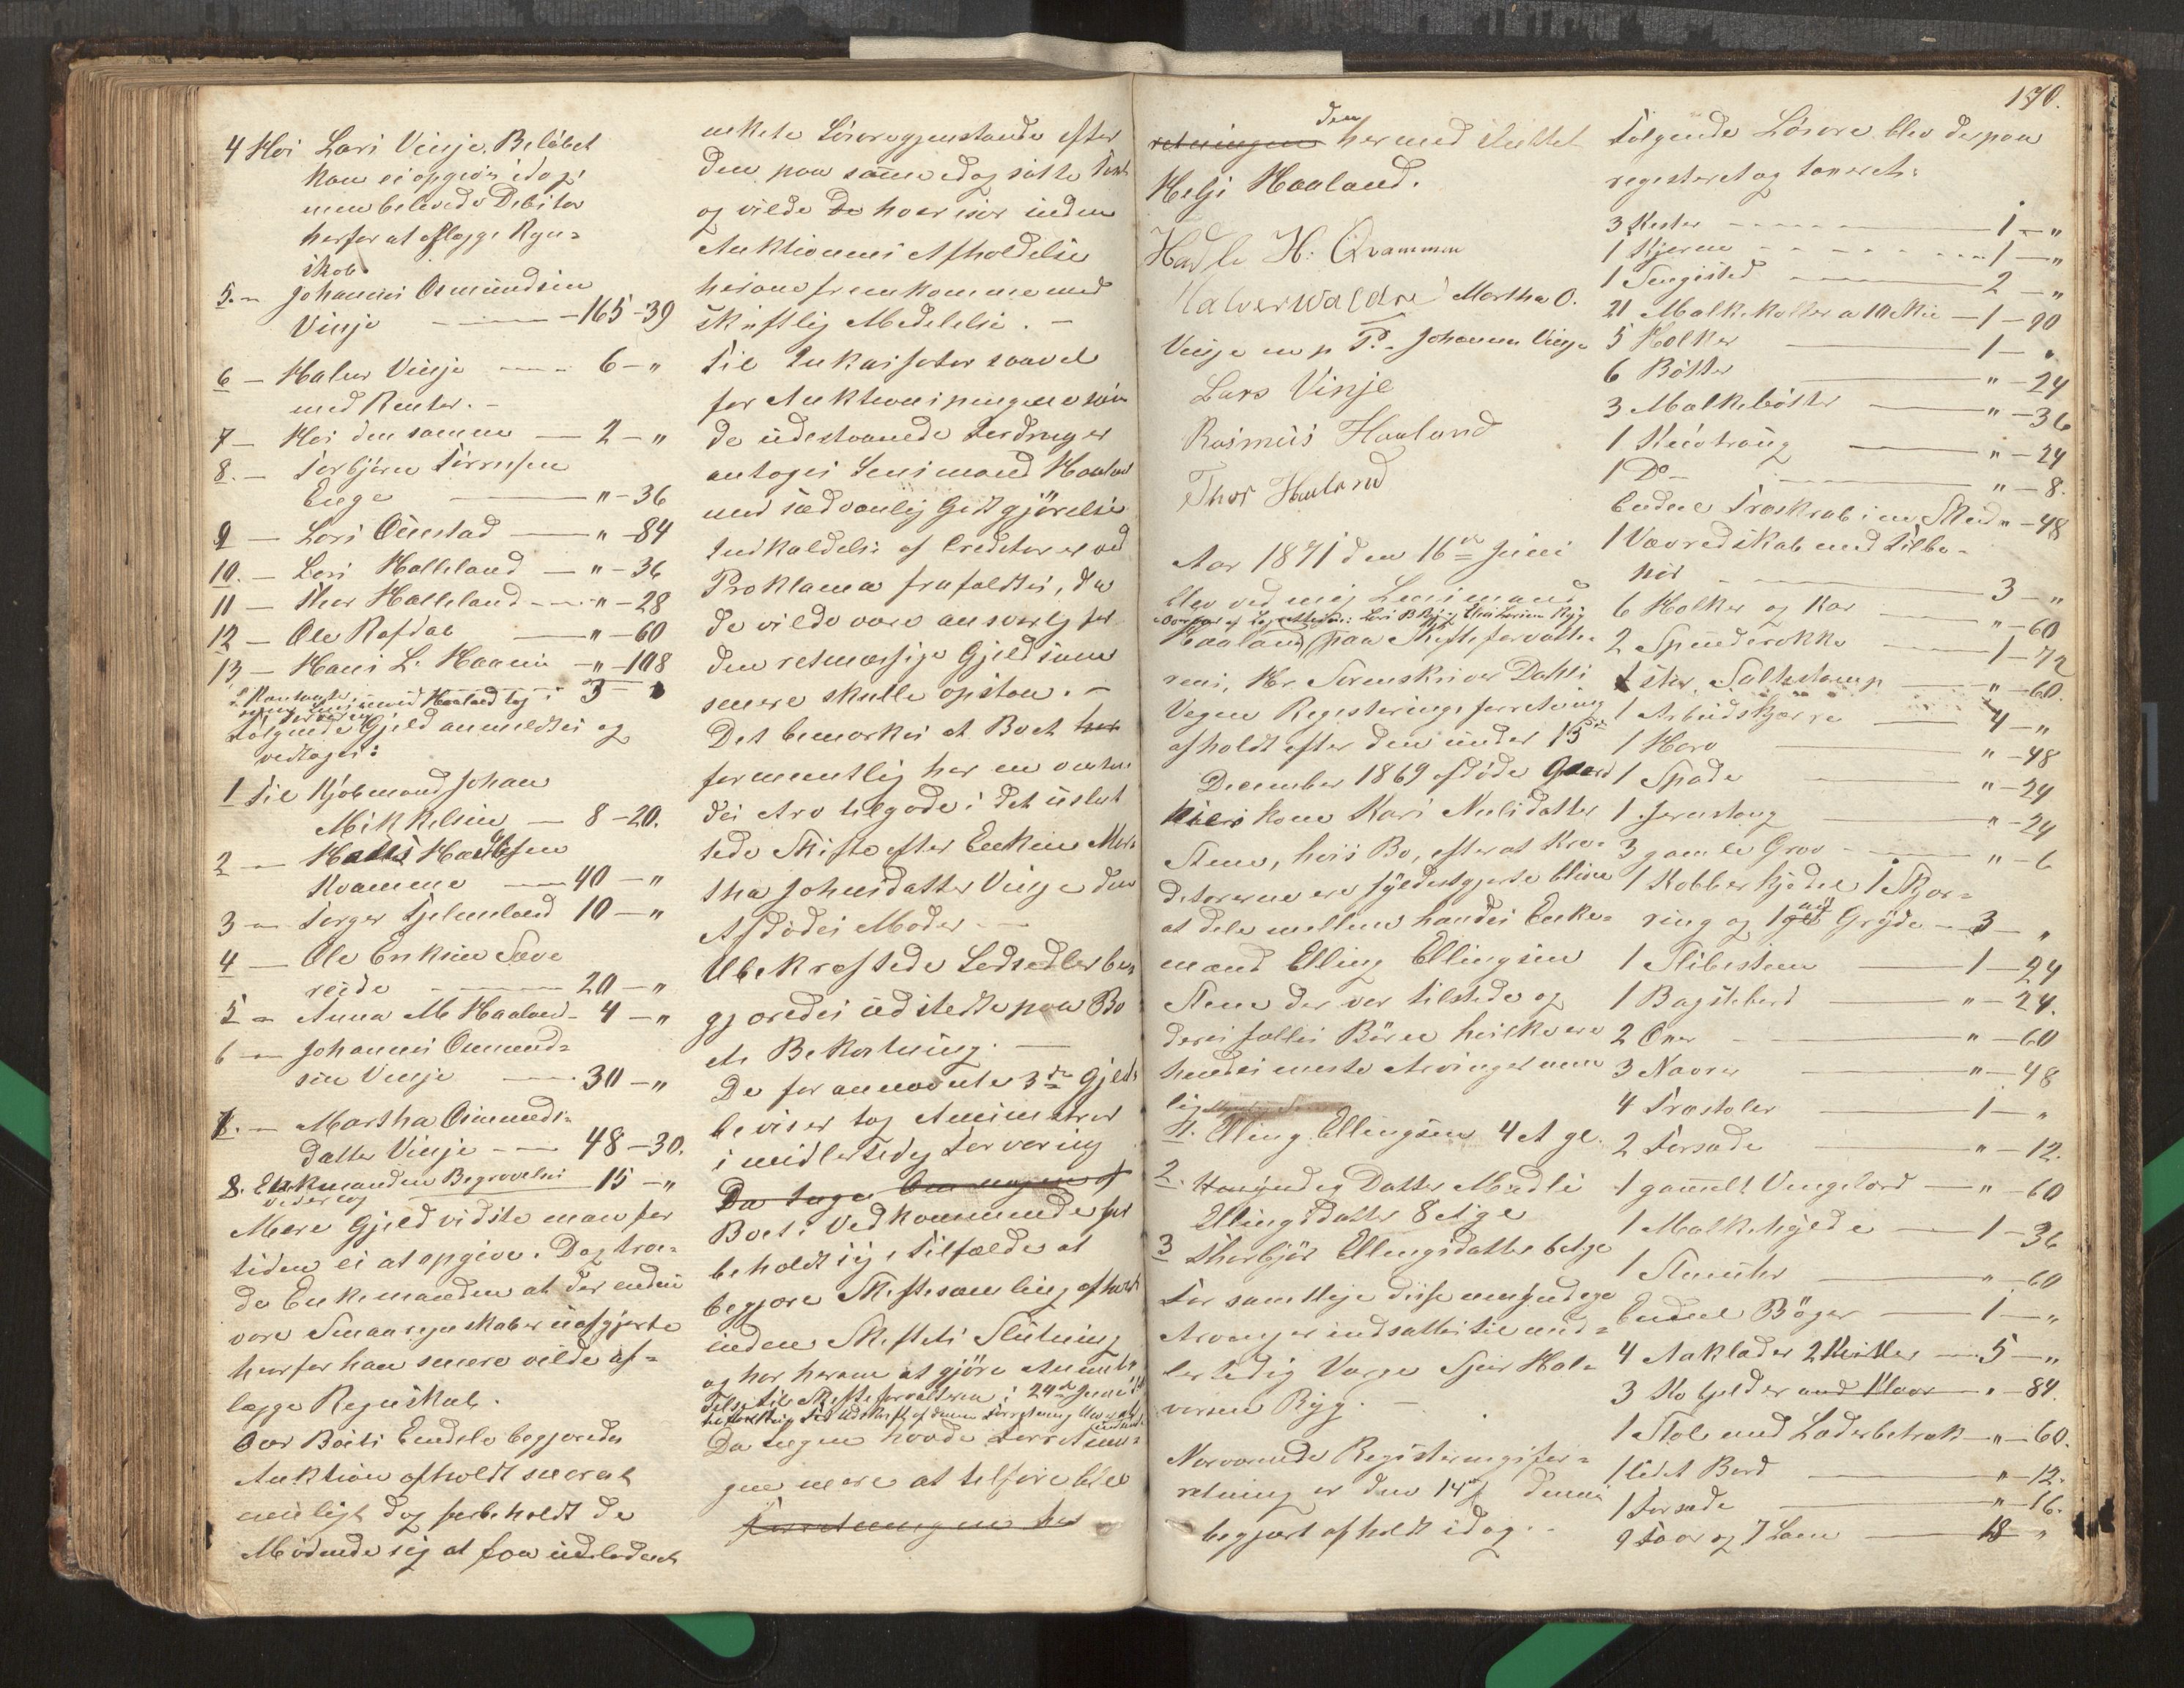 4 Hos Lars Vinje. Beløbet
kan ei opgives idag,
men belovede Debitor
herfor at aflægge Regn-
skab.
5. - Johannes Osmundsen
Vinje - 165 - 39
6 - Halvor Vinje - 6 - "
med Renter. -
7 - Hos den samme - 2 - "
8. - Torbjørn
Enge - " - 36
9 - Lars Ølnestad - " - 84
10. - Lars Halleland - " - 36
11 - Thor Halleland - " - 28
12 - Ole Rafdal - " - 60
13 - Hans L. Haanes - " - 108
S. Kontante, Lensmand Haaland tog i 3 -
Forvaring
Følgende Gjeld anmeldtes og
vedtoges:
1 Til Kjøbmand Johan
Mikkelsen - 8 - 20.
2 - Hadle Hadlesen
Kvamme - 40 - "
3 - Torger Tjelmeland 10 - "
4 - Ole Eriksen Save
reide - 20 - "
5 - Anna M Haaland - 4 - "
6 - Johannes Osmund-
sen Vinje - 30 - "
7. - Martha Osmunds-
datter Vinje - 48 - 30.
8. Enkemanden Begravelses
vederlag - 15 - "
Mere Gjeld vidste man for
tiden ei at opgive. Dog troe-
de Enkemanden at der endnu
vare Smaaregnskaber uafgjorte
hvorfor han senere vilde af-
lægge Regnskab.
Over Boets Eiendele begjæredes
Auktion afholdt snarest
muligt dog forbeholdt de
Mødende sig at faa udeladt
enkelte Løsøregjenstande efter
den paa samme idag satte Taxt
og vilde de hver især inden
Auktionens Afholdelse
herom fremkomme med
skriftlig Meddelelse. -
Til Inkassator saavel
for Auktionspengene som
de udestaaende Fordringer
antoges Lensmand Haaland
med sædvanlig Godtgjørelse
Indkaldelse af Creditorer ved
Proklama frafaldtes, da
de vilde være ansvarlig for
den retmæssige Gjeld som
senere skulle opstaa. -
Det bemærkes at Boet har
formentlig har en
des Arv tilgode i det uslut
tede Skifte efter Enken Mar-
tha Johnsdatter Vinje den
Afdødes Moder. -
Ubekræftede Ledsedler be-
gjæredes udstedte paa Bo
ets Bekostning. -
De forannævnte 3de Gjelds
beviser tog Administrator
i midlertidig Forvaring
Da Ingen
Boets Vedkommende for
beholdt sig i Tilfælde at
begjære Skiftesamling afholdt
inden Skiftets Slutning
og har herom at gjøre Anmel-
delse til Skifteforvalteren i 24de Juni
Udskrift af denne Forretning
Da Ingen havde Forretnin-
gen mere at tilføie blev
forretningen her
170.
retningen den hermed sluttet
Helje Haaland.
Hadle H. Qvammen
Halvor Martha O.
Vinje m p P. Johannes Vinje
Lars Vinje
Rasmus Haaland
Thor Haaland
Aar 1871 den 16de Juni
blev ved mig Lensmand
Haaland paa Skifteforvalte-
rens, Hr Sorenskriver Dahls
Vegne Registreringsforretning
afholdt efter den under 15de
December 1869 afdøde Gaard
mandskone Kari Neelsdatter
Stene, hvis Bo, efterat Kre-
ditorerne ere fyldestgjorte bliver
at dele mellem hendes Enke-
mand Elling Ellingsen
Stene der var tilstede og
deres fælles Børn hvilke ere
hendes eneste Arvinger nem
lig
1. Elling Ellingsen 4 A gl.
2. Umyndig Datter Madli
Ellingsdatter 8 A ge
3 Thorbjør Ellingsdatter 6 A ge
For samtlige disse umyndige
Arvinger indsattes til mid-
lertidig Værge Sjur Hal-
vorsen Ryg. -
Nærværende Registreringsfor-
retning er den 14de dennes
begjært afholdt idag. -
Følgende Løsøre blev derpaa
registreret og taxeret:
3 Kister - 1 - "
1 Kjærne - 1 - "
1 Sengested - 2 - "
21 Mælkekoller a 10 Sk - 1 - 90
5 Holker - 1 - "
6 Bøtter - " - 24
3 Mælkebøtter - " - 36
1 Knotraug - " - 24
1 Do - " - 8.
Endeel Træskrab i en Skud " - 48
1 Vævredskab med Tilbe-
hør - 3 - "
6 Holker og Kar - " - 60
2 Spinderokke - 1 - 72
1 stor Saltstamp - " - 60
1 Arbeidskjærre - 4 - "
1 Harv - " - 48
1 Spade - " - 24
1 Jernstang - " - 24
3 gamle Grev - " - 6
1 Kobberkjedel 1 Skjør-
ring og 1 Gryde - 3 - "
1 Slibesteen - 1 - 24
1 Bagstebord - " - 24.
2 Øxer - " - 60
3 Navrer - " - 48
4 Træstoler - 1 - "
2 Torsade - " - 12.
1 gammelt Vengebord - " - 60
1 Mælkehylde - 1 - 36
1 Stueuhr - " - 60
Endeel Bøger - 1 - "
4 Aaklæder 2 - 5 - "
3 Kobjelder - " - 84.
1 Stol med Læderbetræk - " - 60.
1 lidet Bord - " - 12.
1 Torsade - " - 16.
9 Faar og 7 Lam - 18 "